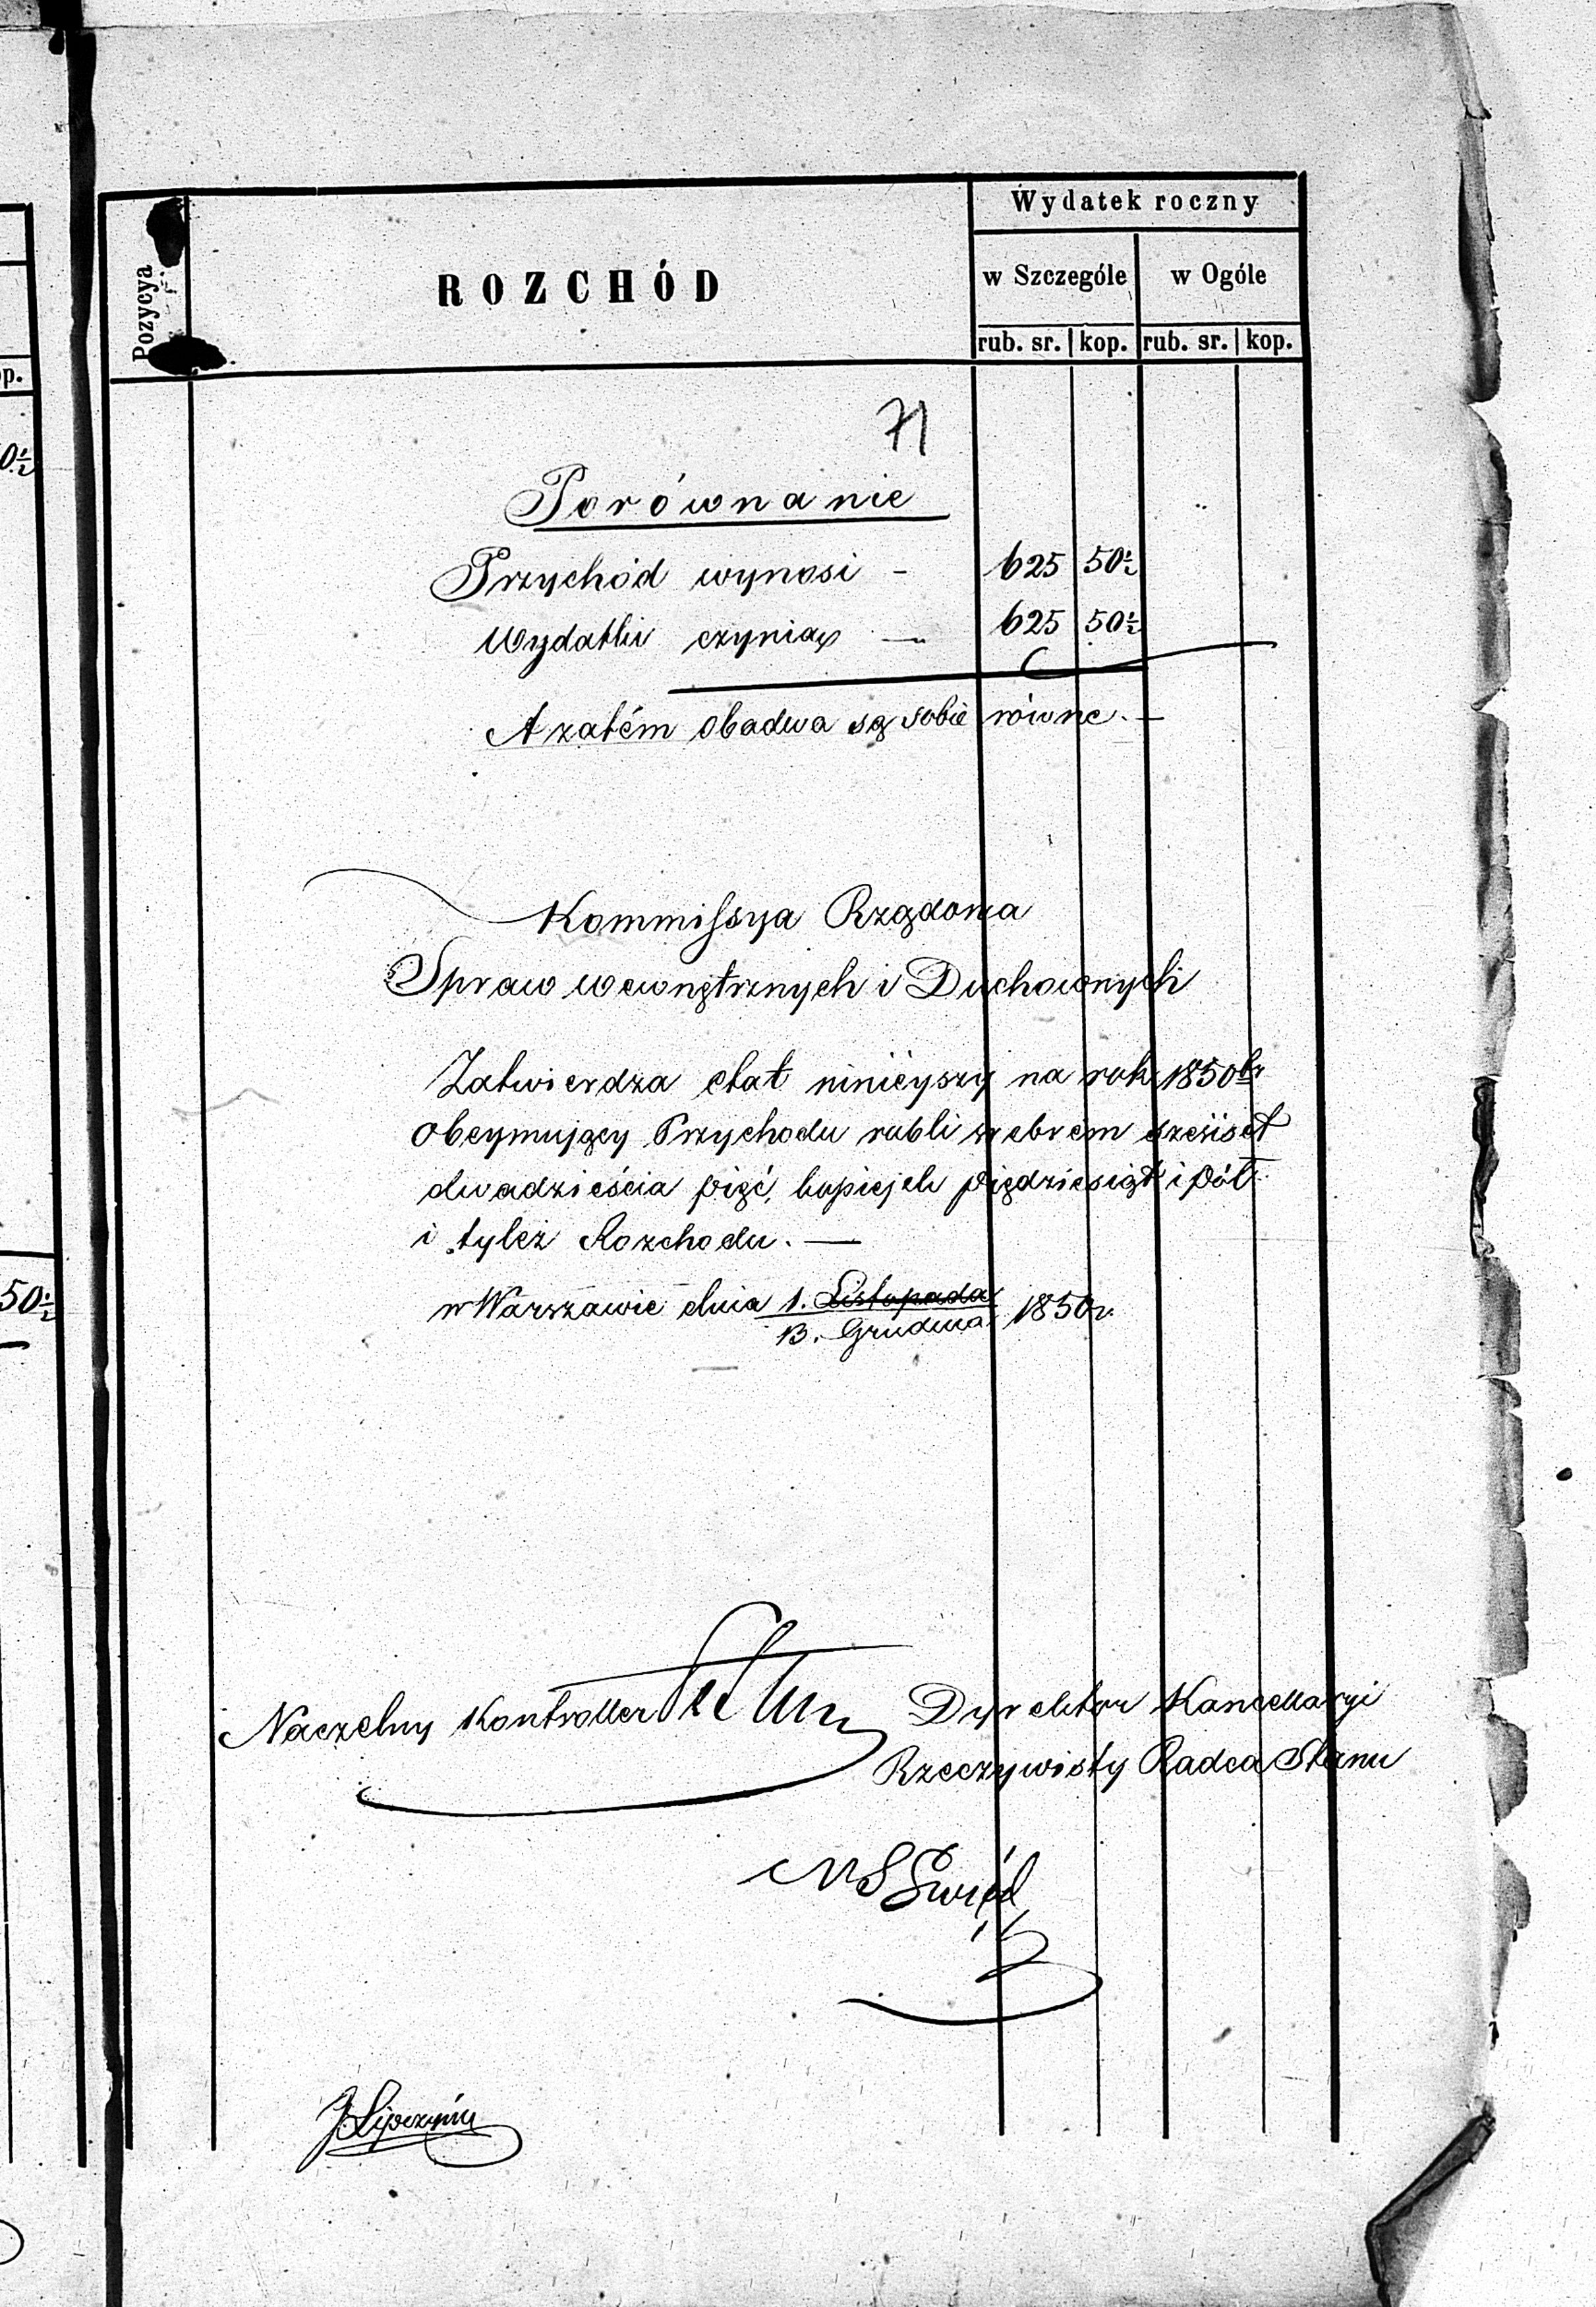 p.
0½
50½
Pozycya
ROZCHÓD
Wydatek roczny
w Szczególe
w Ogóle
rub. sr. kop. rub. sr. kop.
71
Porównanie
Przychód wynosi - 625 50½
Wydatki czynią — 625 50½
A zatém obadwa są sobie równe. —
Kommissya Rządowa
Spraw wewnętrznych i Duchownych
Zatwierdza etat ninieyszy na rok 1850ty
obeymujący Przychodu rubli srebrem sześćset
dwadzieścia pięć, kopiejek pięćdziesiąt i pół
i tyleż Rozchodu. —
w Warszawie dnia 1. Listopada
13. Grudnia 1850 r.
Naczelny Kontroller
Dyrektor Kancellaryi
Rzeczywisty Radca Stanu